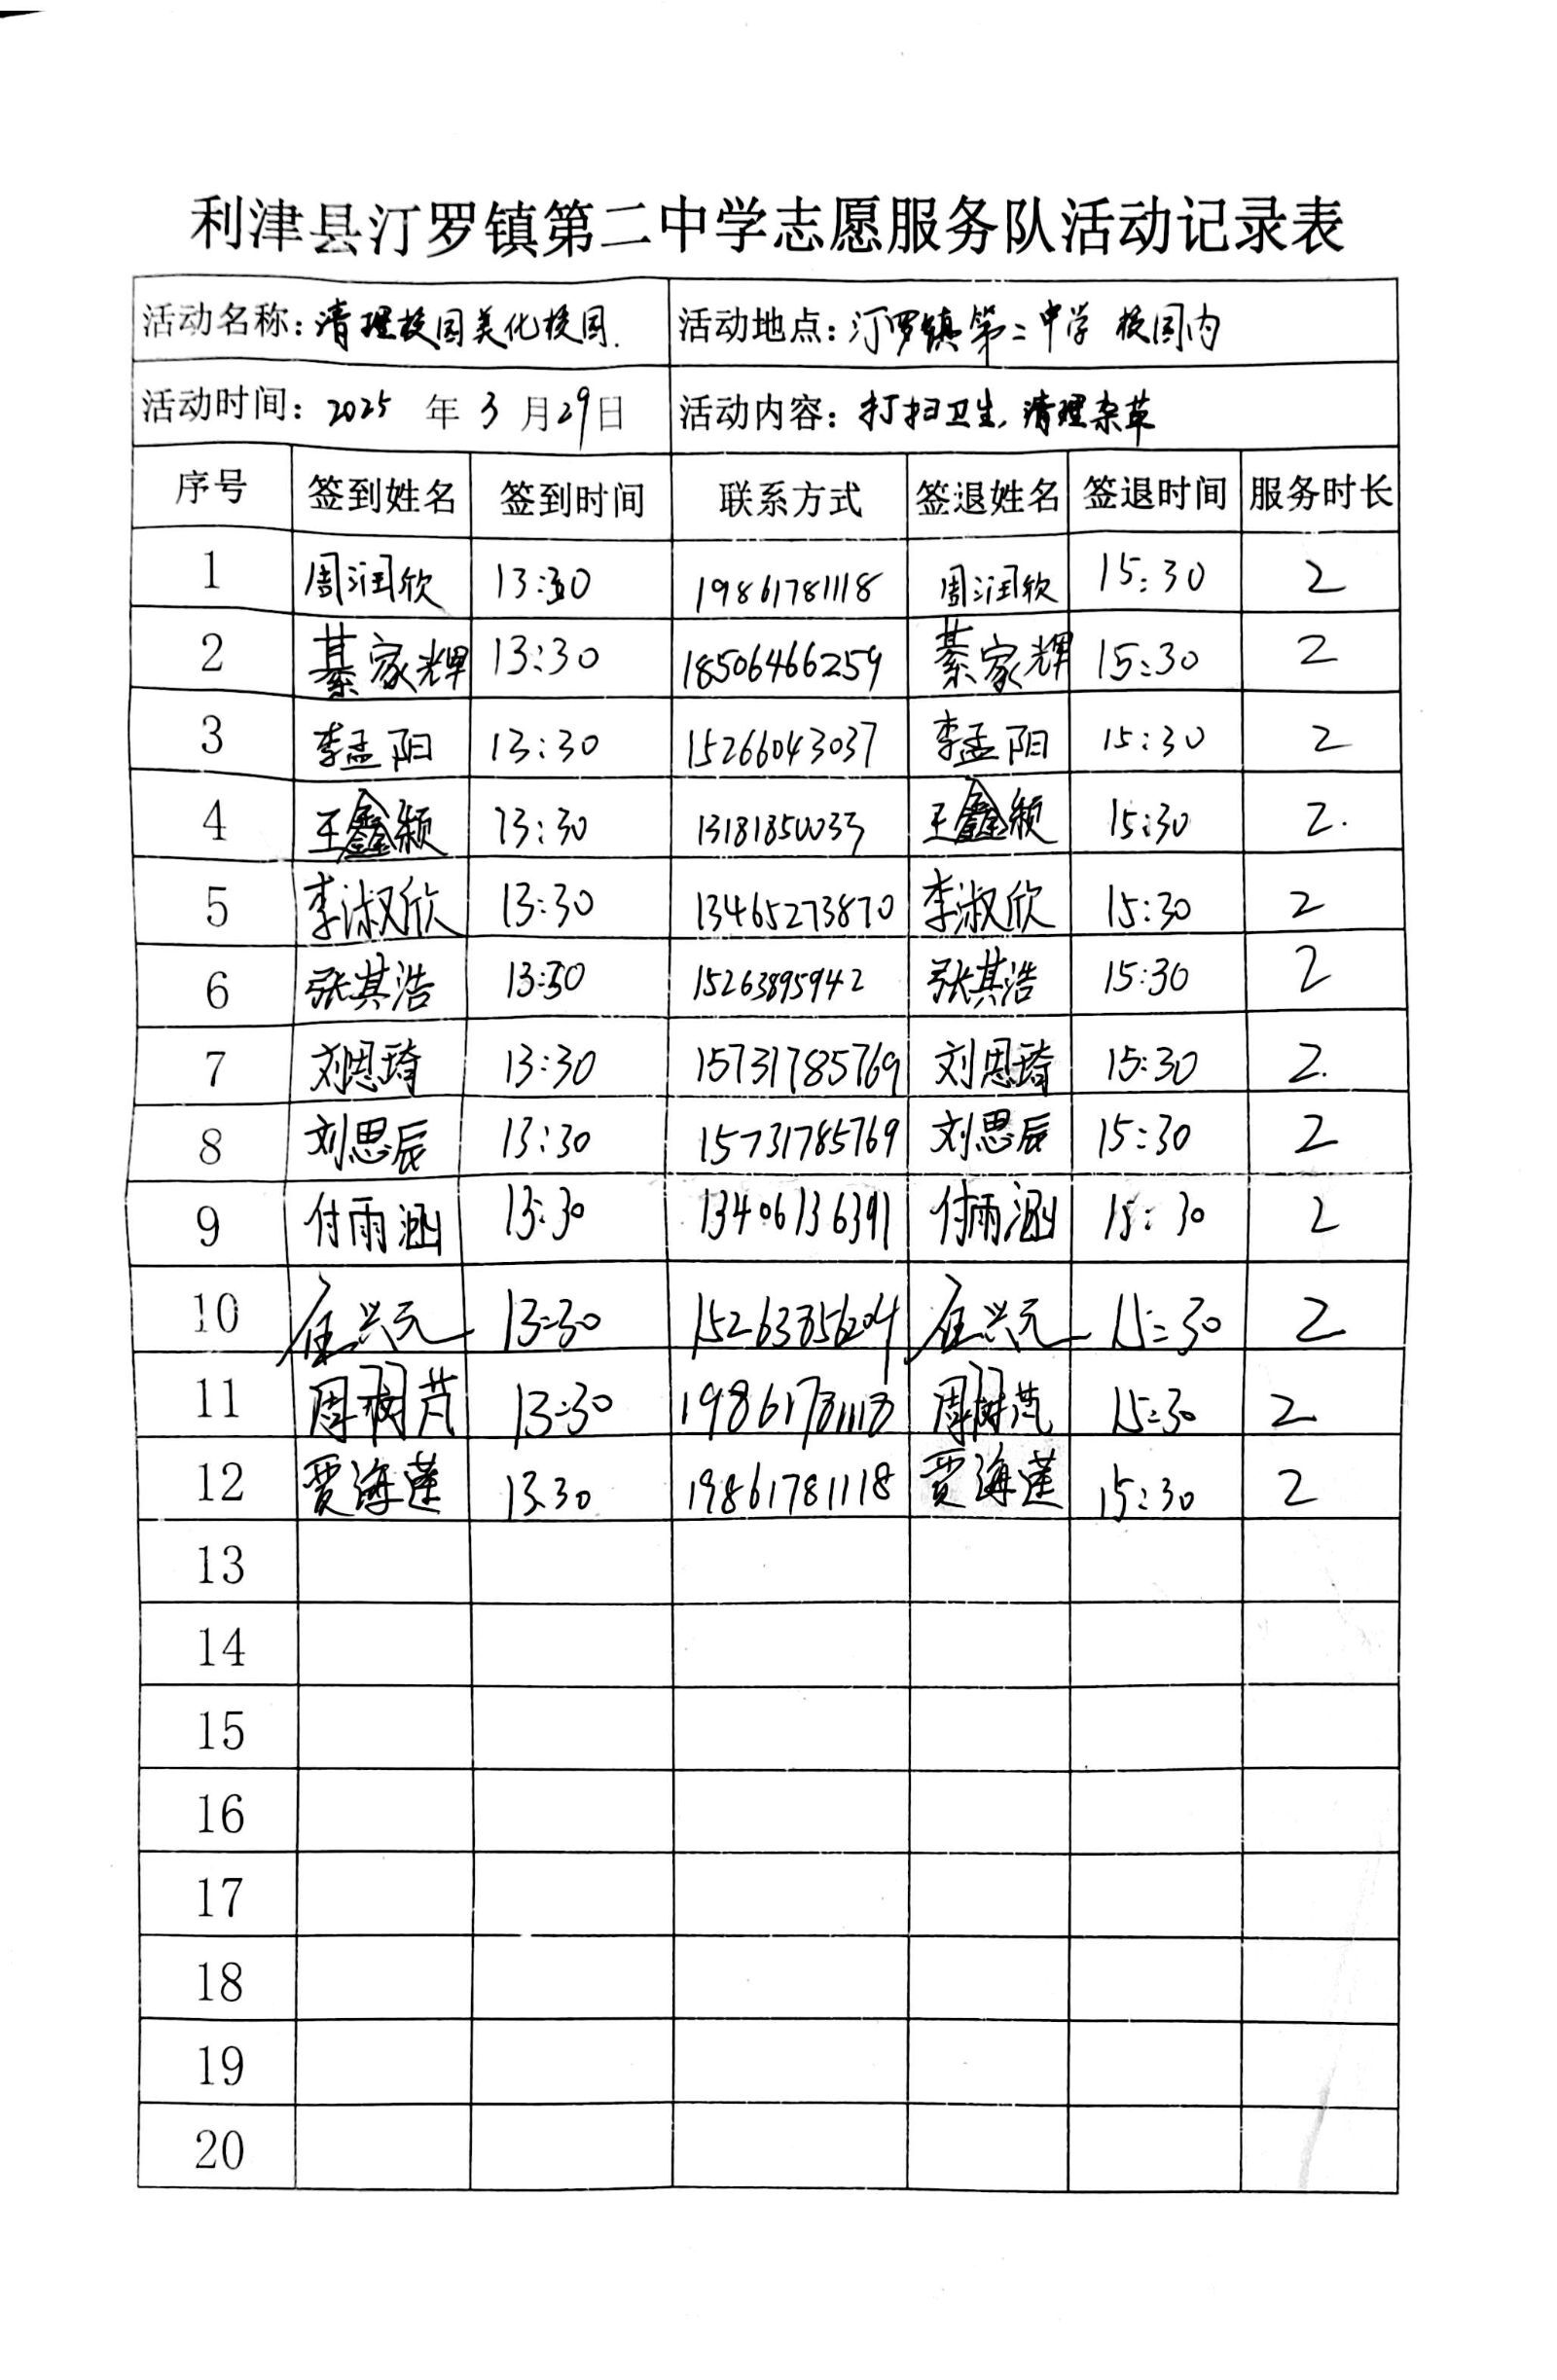 利津县汀罗镇第二中学志愿服务队活动记录表
活动名称：清理校园美化校园. 活动地点：汀罗镇第二中学校园内
活动时间：2025 年 3 月 29 日 活动内容：打扫卫生，清理杂草
序号 签到姓名 签到时间 联系方式 签退姓名 签退时间 服务时长
1 周润欣 13:30 19861781118 周润欣 15:30 2
2 綦家辉 13:30 18506466259 綦家辉 15:30 2
3 李孟阳 13:30 15266043037 李孟阳 15:30 2
4 王鑫颖 13:30 13181850033 王鑫颖 15:30 2.
5 李淑欣 13:30 13465273870 李淑欣 15:30 2
6 张其浩 13:30 15263895942 张其浩 15:30 2
7 刘恩琦 13:30 15731785769 刘恩琦 15:30 2.
8 刘思辰 13:30 15731785769 刘思辰 15:30 2
9 付雨涵 13:30 13406136391 付雨涵 15:30 2
10 兴元 13:30 兴元 15:30 2
11 周 13:30 19861781118 周 15:30 2
12 贾海莲 13:30 19861781118 贾海莲 15:30 2
13
14
15
16
17
18
19
20